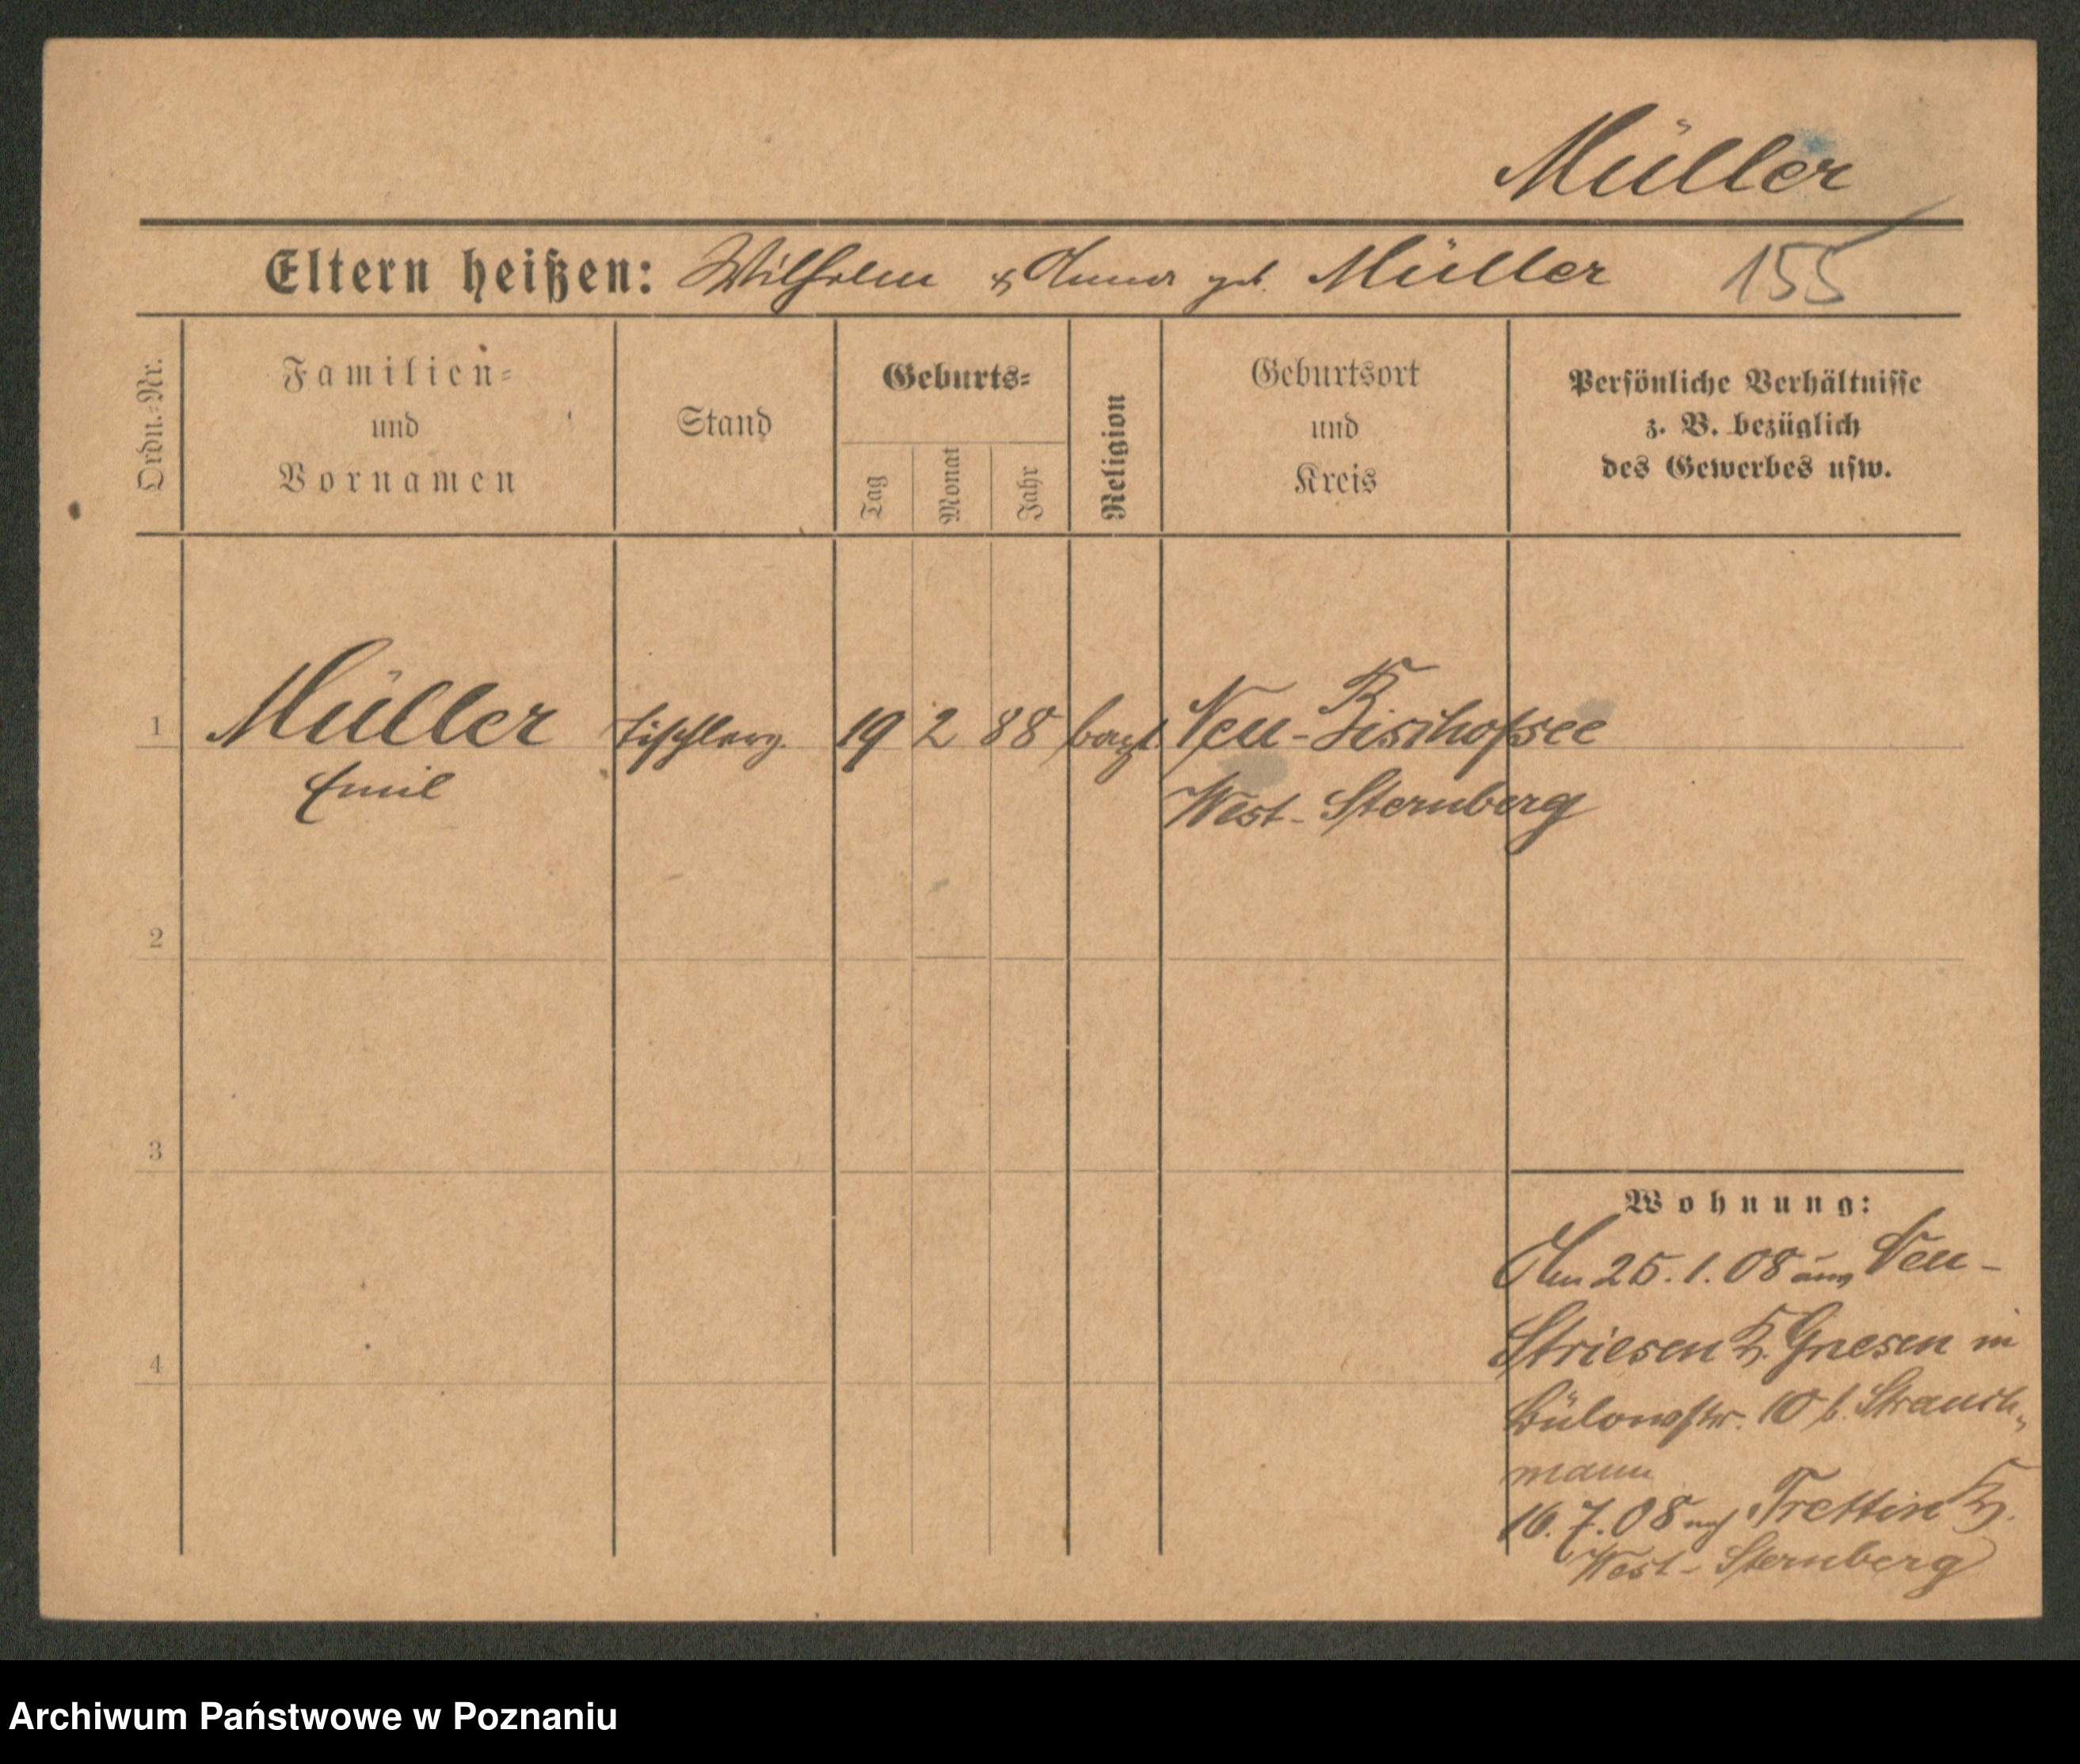 Müller
Eltern heißen: Wilhelm & Anna geb. Müller 155
Ordn.-Nr.
Familien-
und
Vornamen
Stand
Geburts-
Tag
Monat
Jahr
Religion
Geburtsort
und
Kreis
Persönliche Verhältnisse
z. B. bezüglich
des Gewerbes usw.
1 Müller 19 2 88 Neu-Bischofsee
Emil West-Sternberg
2
3
4
Wohnung:
Am 25.1.08 aus Neu-
Striesen K. Gnesen in
Bülowstr. 10 b. Strauch-
mann
16.7.08 nach Trettin K.
West-Sternberg
Archiwum Państwowe w Poznaniu